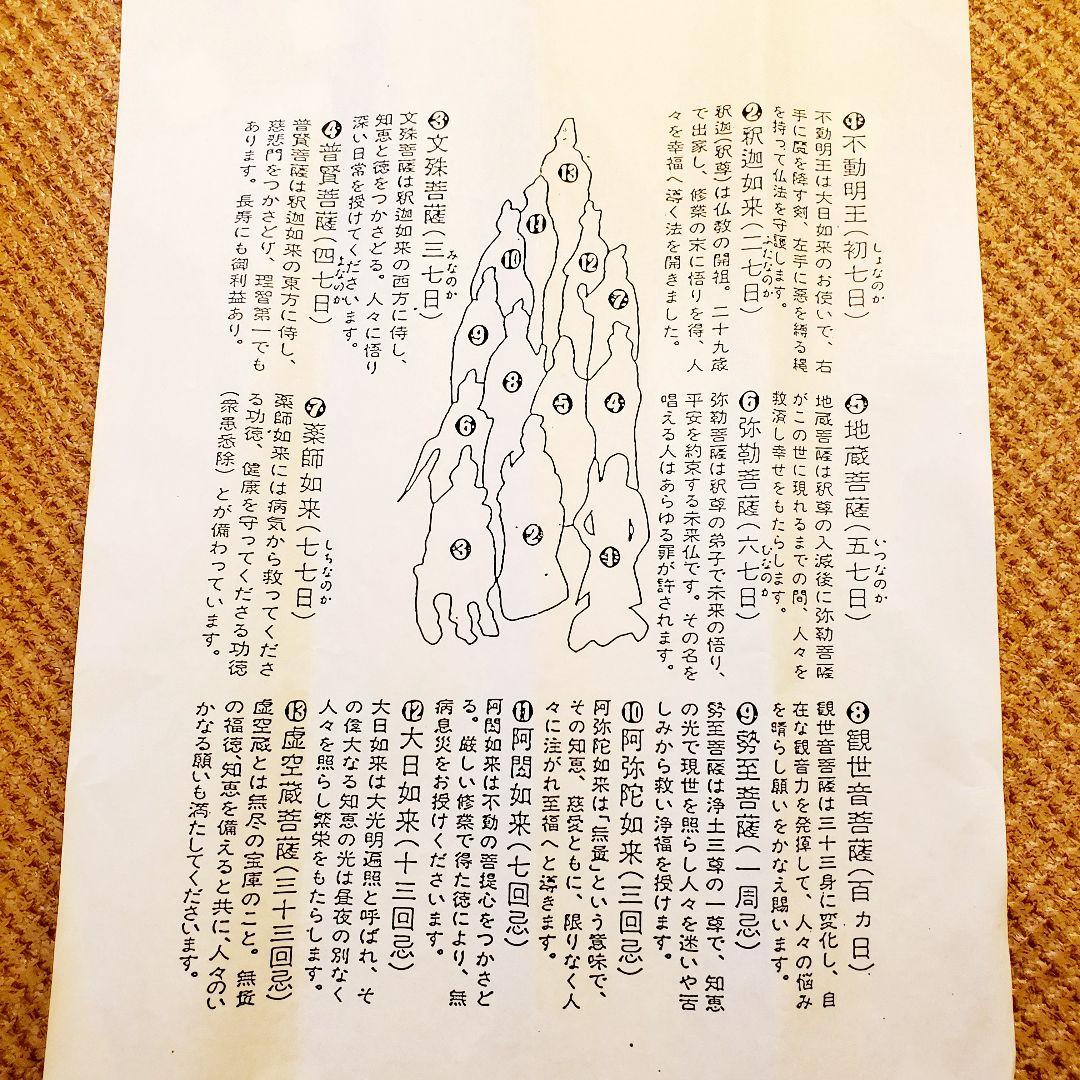 ❶不動明王(初七日)
しょなのか
不動明王は大日如来のお使いで、右
手に魔を降す剣、左手に悪を縛る縄
を持って仏法を守護します。
❷釈迦如来(二七日)
ふたなのか
釈迦(釈尊)は仏教の開祖。二十九歳
で出家し、修業の末に悟りを得、人
々を幸福へ導く法を開きました。
❸文殊菩薩(三七日)
みなのか
文殊菩薩は釈迦如来の西方に侍し、
知恵と徳をつかさどる。人々に悟り
深い日常を授けてくださいます。
❹普賢菩薩(四七日)
よなのか
普賢菩薩は釈迦如来の東方に侍し、
慈悲門をつかさどり、理習第一でも
あります。長寿にも御利益あり。
❺地蔵菩薩(五七日)
いつなのか
地蔵菩薩は釈尊の入滅後に弥勒菩薩
がこの世に現れるまでの間、人々を
救済し幸せをもたらします。
❻弥勒菩薩(六七日)
ひなのか
弥勒菩薩は釈尊の弟子で未来の悟り、
平安を約束する未来仏です。その名を
唱える人はあらゆる罪が許されます。
❼薬師如来(七七日)
しちなのか
薬師如来には病気から救ってくださ
る功徳、健康を守ってくださる功徳
(衆患悉除)とが備わっています。
❽観世音菩薩(百ヵ日)
観世音菩薩は三十三身に変化し、自
在な観音力を発揮して、人々の悩み
を晴らし願いをかなえ賜います。
❾勢至菩薩(一周忌)
勢至菩薩は浄土三尊の一尊で、知恵
の光で現世を照らし人々を迷いや苦
しみから救い浄福を授けます。
❿阿弥陀如来(三回忌)
阿弥陀如来は「無量」という意味で、
その知恵、慈愛ともに、限りなく人
々に注がれ至福へと導きます。
⓫阿閦如来(七回忌)
阿閦如来は不動の菩提心をつかさど
る。厳しい修業で得た徳により、無
病息災をお授けくださいます。
⓬大日如来(十三回忌)
大日如来は大光明遍照と呼ばれ、そ
の偉大なる知恵の光は昼夜の別なく
人々を照らし繁栄をもたらします。
⓭虚空蔵菩薩(三十三回忌)
虚空蔵とは無尽の宝庫のこと。無量
の福徳、知恵を備えると共に、人々のい
かなる願いも満たしてくださいます。
⓭
⓫
❿
⓬
❼
❾
❽
❺
❹
❻
❸
❷
❶